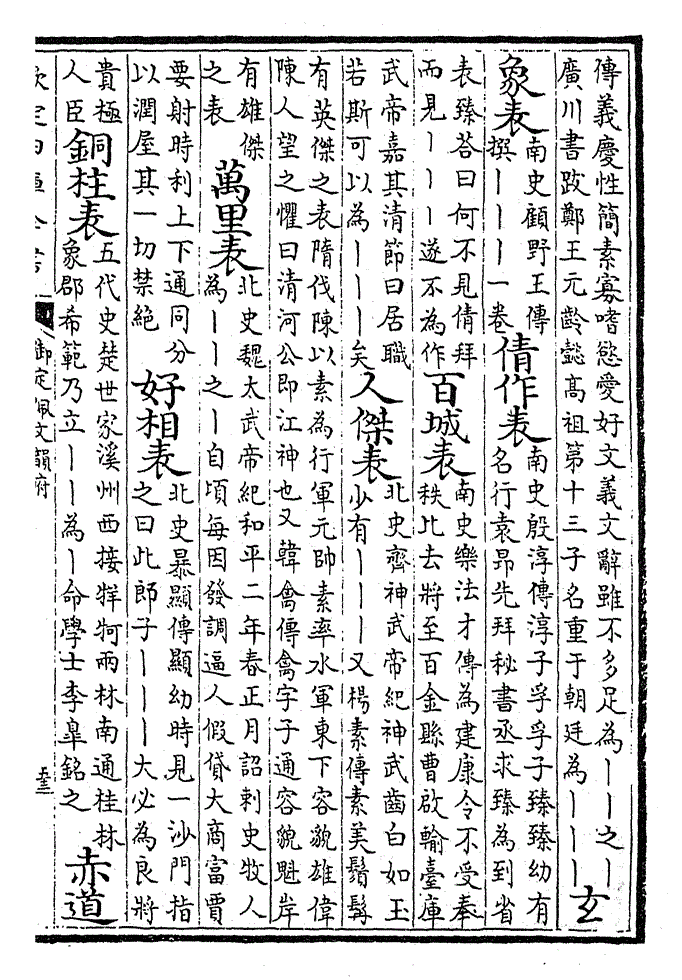 傳義慶性簡素寡嗜慾愛好文義文辭雖不多足為丨丨之丨
廣川書跋鄭王元齡懿髙祖第十三子名重于朝廷為丨丨丨
玄
象表
南史顧野王傳
撰丨丨丨一卷
倩作表
南史殷淳傳淳子孚孚子臻臻幼有
名行袁昂先拜秘書丞求臻為到省
表臻荅曰何不見倩拜
而見丨丨丨遂不為作
百城表
南史樂法才傳為建康令不受奉
秩比去將至百金縣曹啟輸臺庫
武帝嘉其清節曰居職
若斯可以為丨丨丨矣
人傑表
北史齊神武帝紀神武齒白如玉
少有丨丨丨又楊素傳素美鬚髯
有英傑之表隋伐陳以素為行軍元帥素率水軍東下容貌雄偉
陳人望之懼曰清河公即江神也又韓禽傳禽字子通容貌魁岸
有雄傑
之表
萬里表
北史魏太武帝紀和平二年春正月詔刺史牧人
為丨丨之丨自頃每因發調逼人假貸大商富賈
要射時利上下通同分
以潤屋其一切禁絶
好相表
北史暴顯傳顯幼時見一沙門指
之曰此郎子丨丨丨大必為良將
貴極
人臣
銅柱表
五代史楚世家溪州西接牂牁兩林南通桂林
象郡希範乃立丨丨為丨命學士李臯銘之
赤道
欽定四庫全書
御定佩文韻府